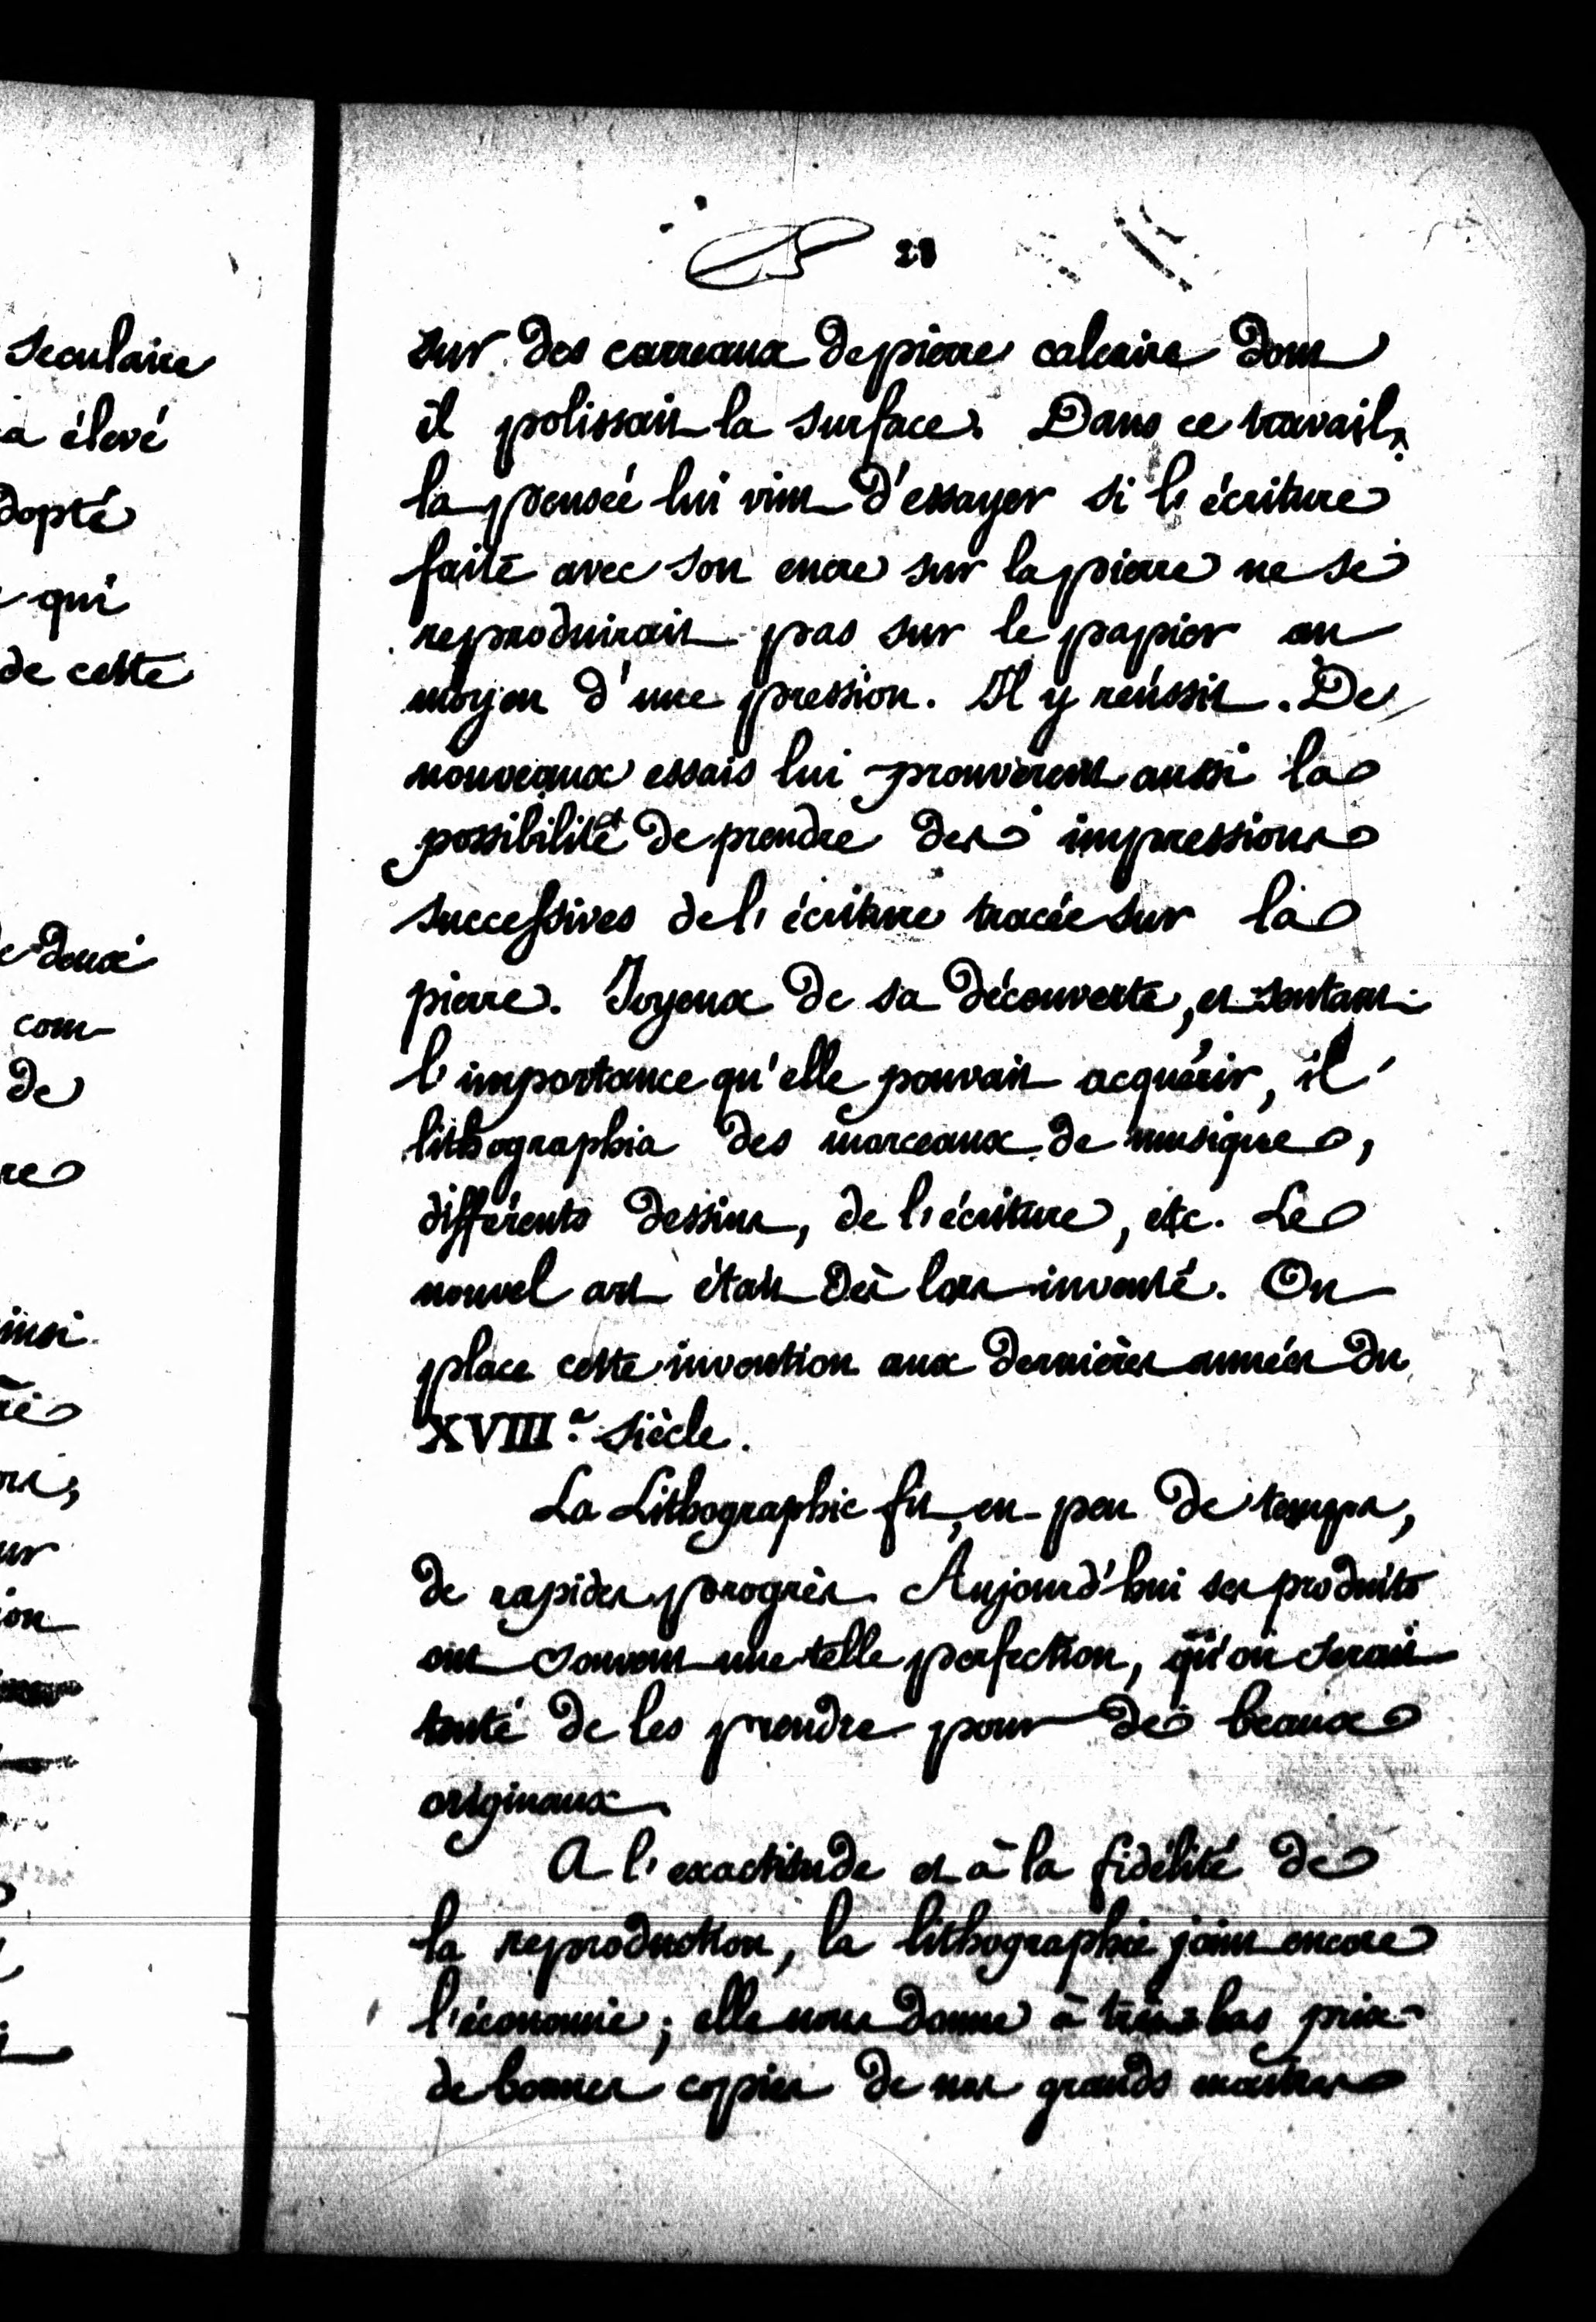 seculaire
a élevé
dopté
qui
de cette
deux
com
de
re
insi
ur
ion
28
sur des carreaux de pierre calcaire dont
il polissait la surface. Dans ce travail,
la pensée lui vint d'essayer si l'écriture
faite avec son encre sur la pierre ne se
reproduirait pas sur le papier au
moyen d'une pression. Il y réussit. De
nouveaux essais lui prouvèrent aussi la
possibilité de prendre des impressions
successives de l'écriture tracée sur la
pierre. Joyeux de sa découverte, et sentant
l'importance qu'elle pouvait acquérir, il
lithographia des morceaux de musique,
différents dessins, de l'écriture, etc. Le
nouvel art était dès lors inventé. On
place cette invention aux dernières années du
XVIII.e siècle.
La Lithographie fit, en peu de temps,
de rapides progrès. Aujourd'hui ses produits
ont souvent une telle perfection, qu'on serait
tenté de les prendre pour de beaux
originaux.
A l'exactitude et à la fidélité de
la reproduction, la lithographie joint encore
l'économie; elle nous donne à très bas prix
de bonnes copies de nos grands maîtres